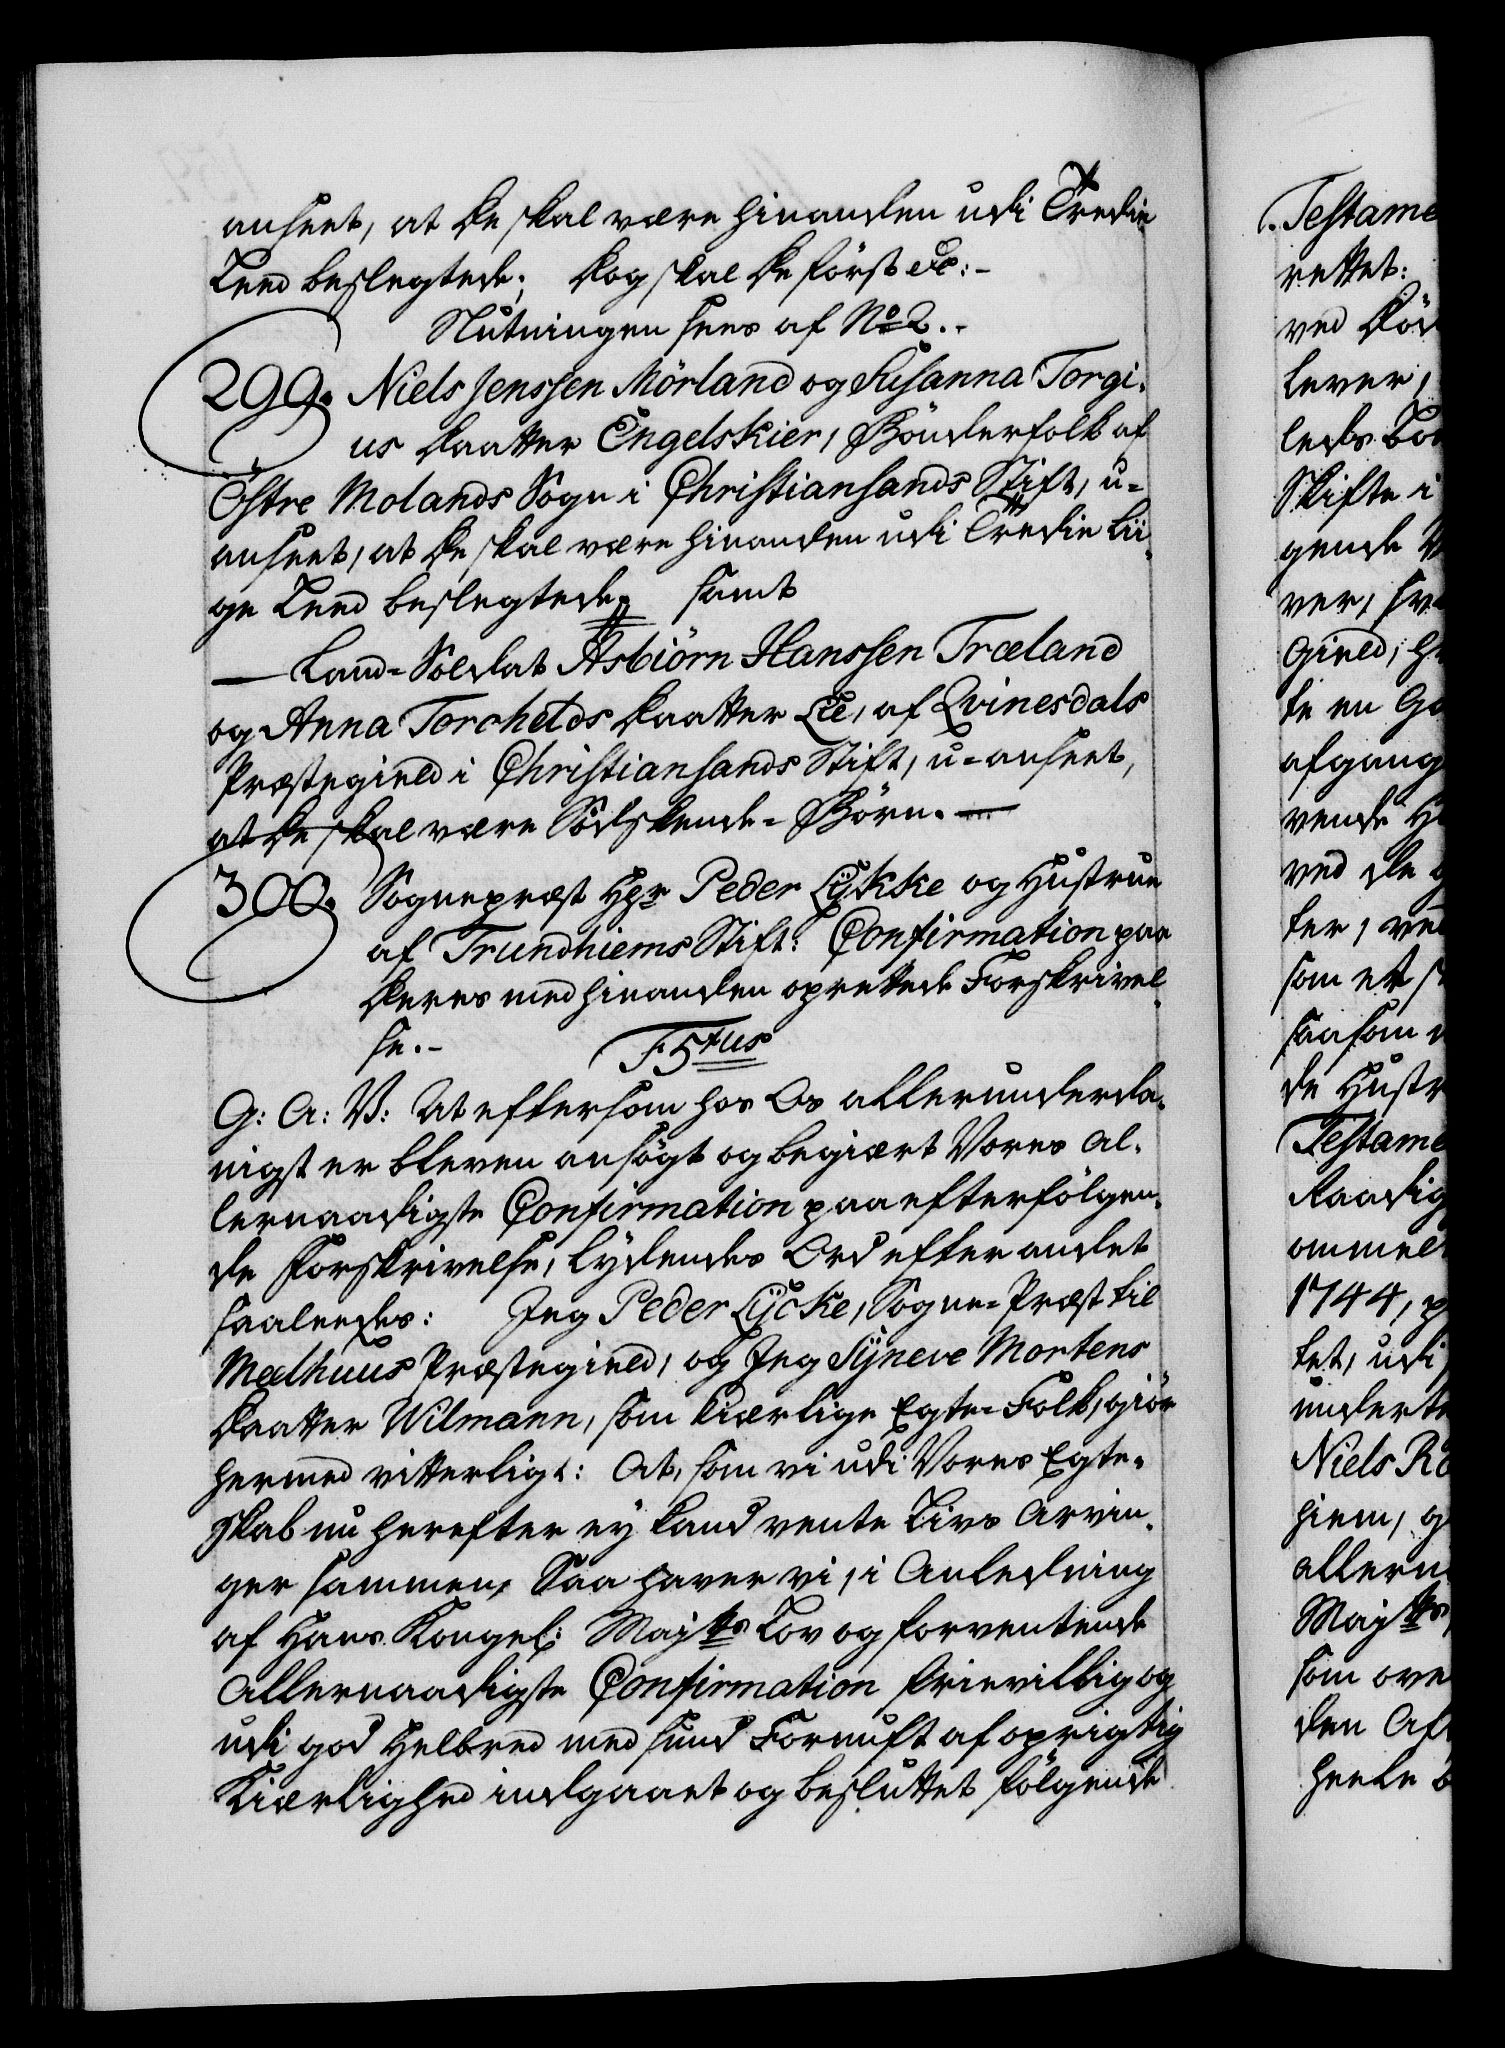 anseet, at de skal være hinanden udi Tredie
Leed beslegtede; dog skal de först etc:-
Slutningen sees af No 2.-
299. Niels Jenssen Mörland og Susanna Torgi-
us daatter Engelskier, Bönderfolk af
Östre Molands Sogn i Christiansands Stift, u-
anseet, at de skal være hinanden udi Tredie Lii-
ge Leed beslegtede; samt
— Land-Soldat Asbiörn Hanssen Træland
og Anna Torchelds daatter Lie, af Qvinesdals
Præstegield i Christiansands Stift, u-anseet,
at de skal være Södskende-Börn.—
300. Sognepræst Hr Peder Lÿkke og Hustrue
af Trundhiems Stift: Confirmation paa
deres med hinanden oprettede Forskrivel-
se.-
F5tus
G: A: V: At eftersom hos Os allerunderda-
nigst er bleven ansögt og begiært Vores Al-
lernaadigste Confirmation paa efterfölgen-
de Forskrivelse, lydendes Ord efter andet
saaledes: Jeg Peder Lÿcke, Sogne-Præst til
Melhuus Præstegield, og Jeg Sÿneve Mortens
daatter Wilmann, som kierlige Egte-Folk, giör
hermed vitterligt: At, som vi udi Vores Egte-
skab nu herefter ey kand vente Livs Arvin-
ger sammen, Saa haver vi, i Anledning
af Hans Kongel: Majtts Lov og forventende
Allernaadigste Confirmation frievillig og
udi god Helbred med sund Fornuft af oprigtig
Kierlighed indgaaet og besluttet fölgende
Testame
rettet:
ved Död
lever,
leds Lov
Skifte i
gende
ver,
Gield,
te en
afgang
vende
ved de
ter, ved
som et
saasom
de Hustr
Testame
Raadig
ommel
1744, p
tet, udi
underte
Niels
hiem, og
allern
Majtts
som ove
den
heele